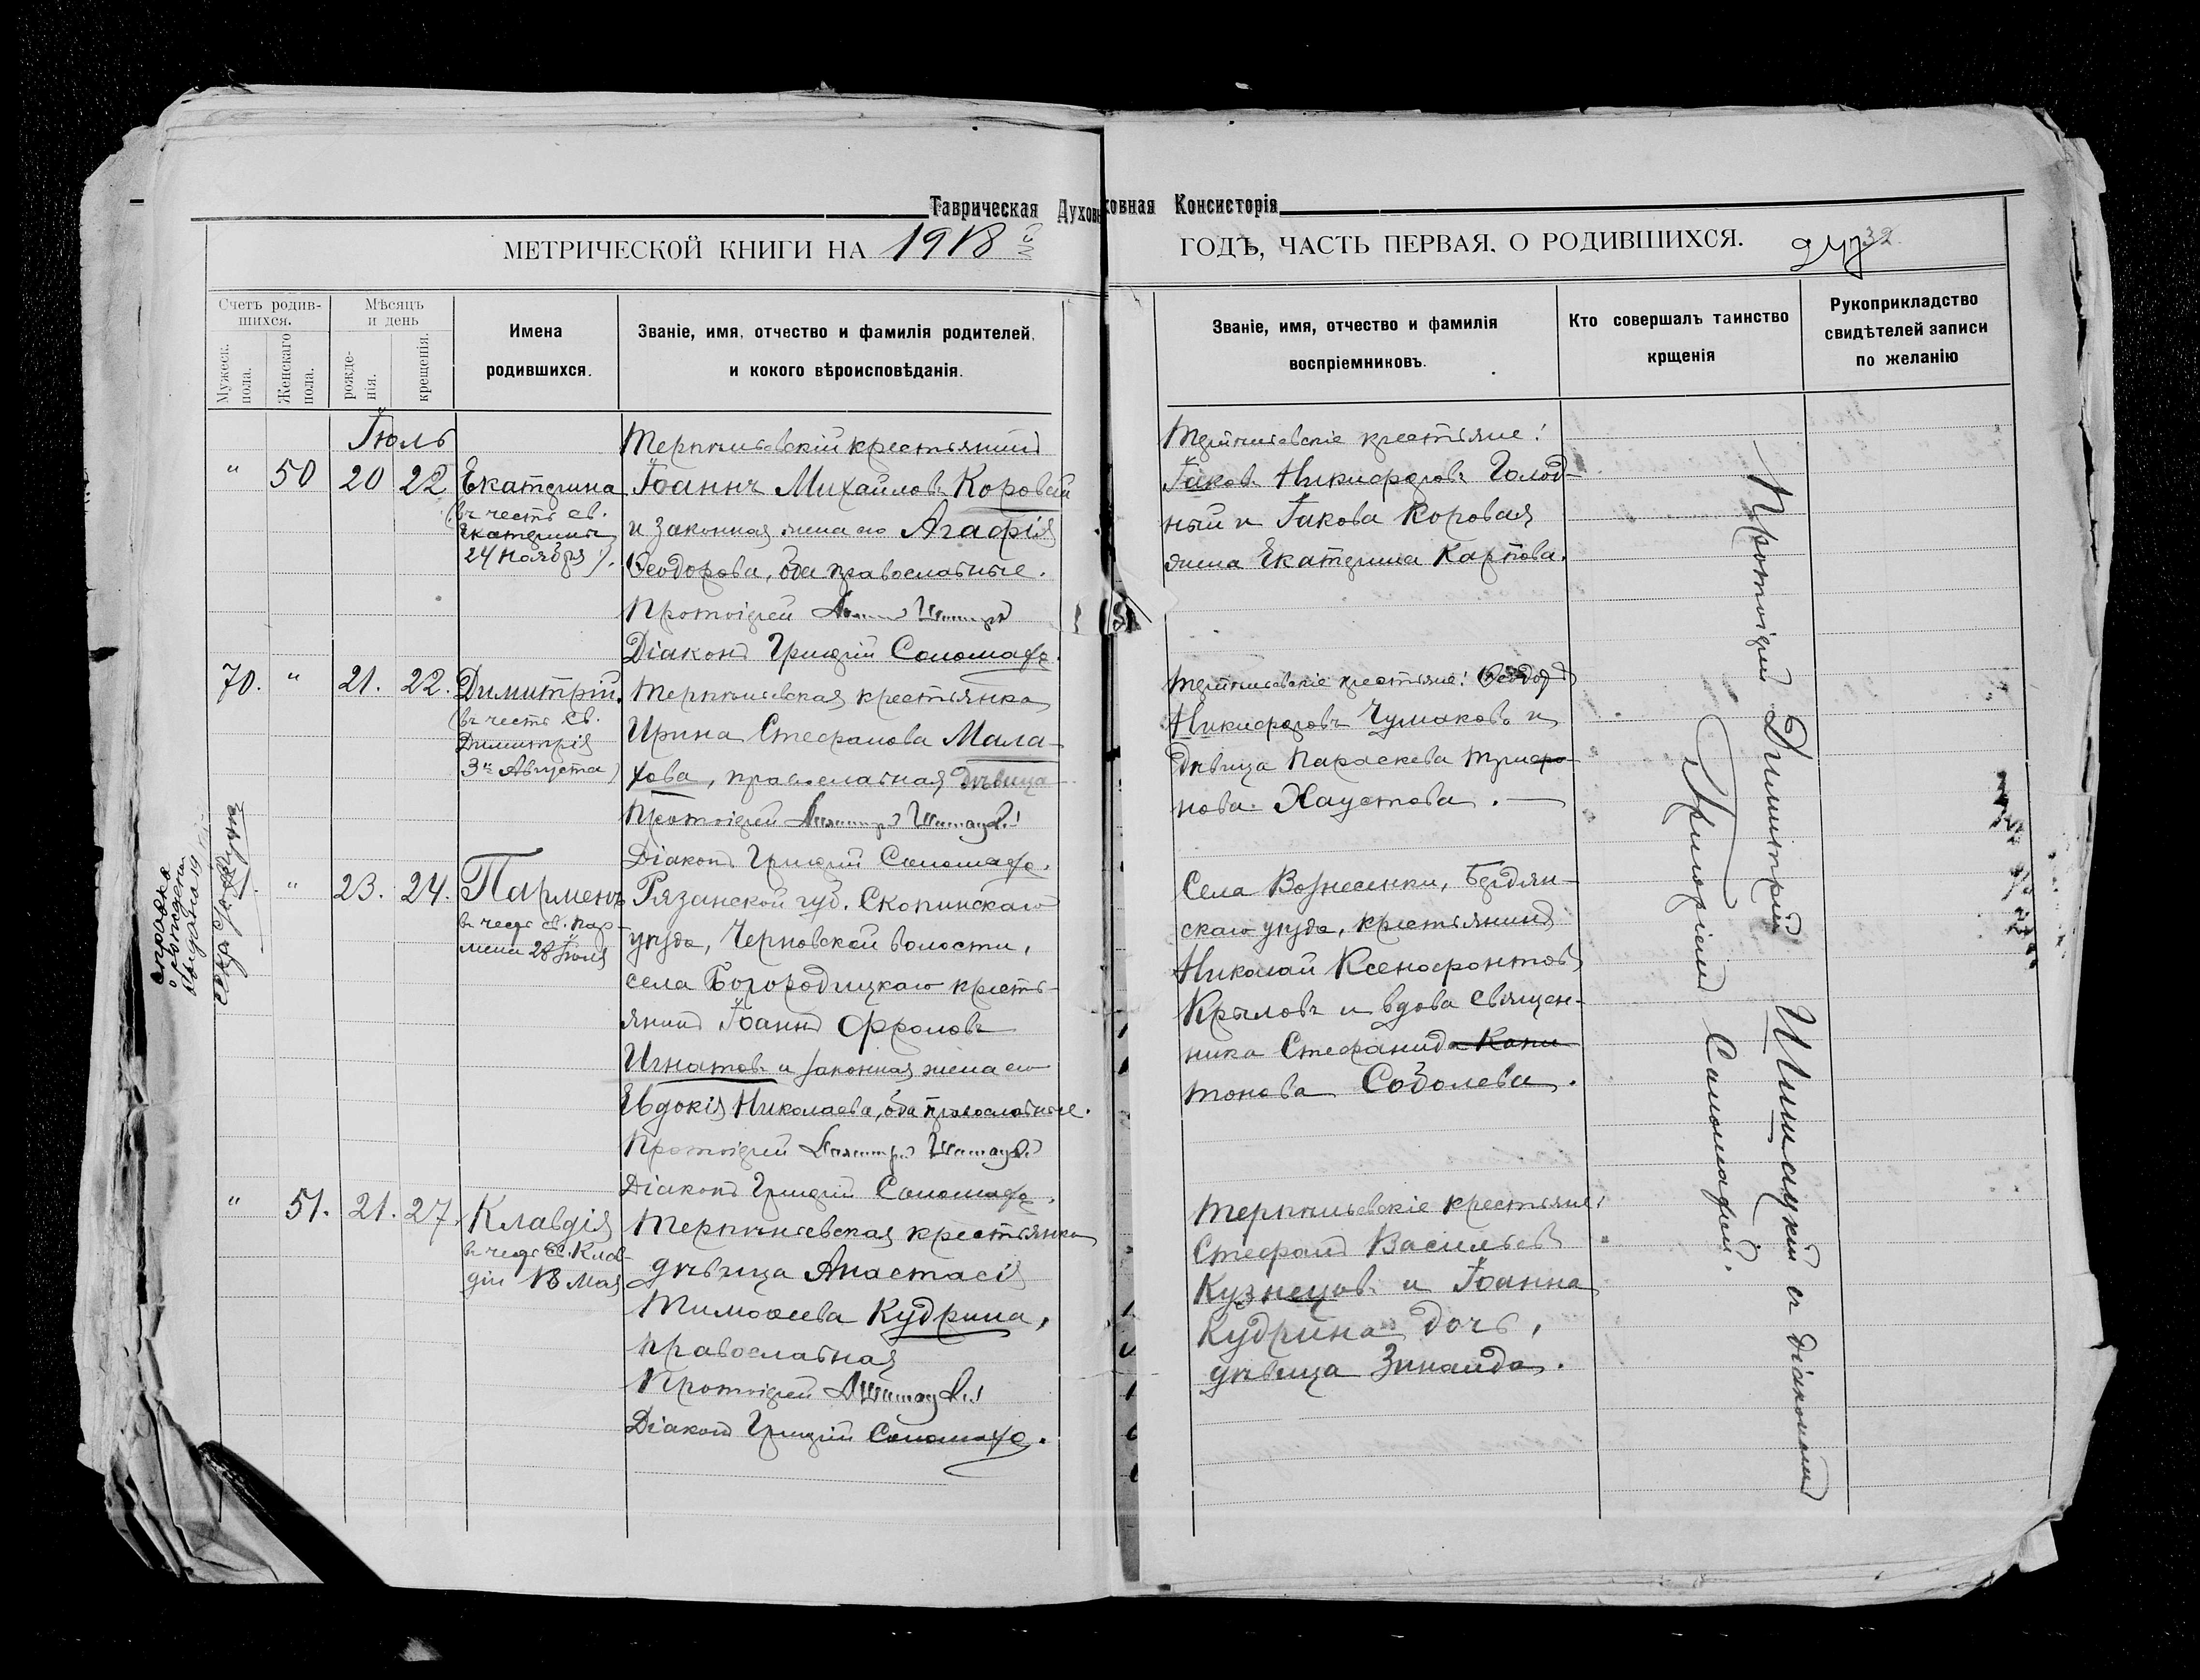 Таврическая Духовная Консисторія
МЕТРИЧЕСКОЙ КНИГИ НА 1918 й
ГОДЪ, ЧАСТЬ ПЕРВАЯ, О РОДИВШИХСЯ.
32.
Счетъ родив-
шихся.
Мужеск.
пола.
Женскаго
пола.
Мѣсяцъ
и день
рожде-
нія.
крещенія.
Имена
родившихся.
Званіе, имя, отчество и фамилія родителей,
и кокого вѣроисповѣданія.
Званіе, имя, отчество и фамилія
воспріемниковъ.
Кто совершалъ таинство
крщенія
Рукоприкладство
свидѣтелей записи
по желанію
Іюль
" 50 20 22 Екатерина
(въ честь св.
Екатерины
24 Ноября).
Терпѣньевскій крестьянинъ
Іоаннъ Михайловъ Коровай
и законная жена его Агафія
Ѳеодорова, оба православные.
Протоіерей
Діаконъ Григорій Соломаха.
Терпѣньевскіе крестьяне:
Іаковъ Никифоровъ Голод-
ный и Іакова Коровая
жена Екатерина Карпова.
70. " 21. 22. Димитрій.
(въ честь Св.
Димитрія
3го Августа)
Терпѣньевская крестьянка
Ирина Стефанова Мала-
хова, православная дѣвица
Протоіерей
Діаконъ Григорій Соломаха.
Терпѣньевскіе крестьяне: Ѳеодоръ
Никифоровъ Чумаковъ и
дѣвица Параскева Трифо-
нова Хаустова.
" 23. 24. Парменъ
въ честь св. Пар-
мена 28 Іюля
Рязанской губ. Скопинскаго
уѣзда, Черновской волости,
села Богородицкаго кресть-
янинъ Іоаннъ Фроловъ
Игнатовъ и законная жена его
Евдокія Николаева, оба православные.
Протоіерей
Діаконъ Григорій Соломаха.
Села Вознесенки, Бердян-
скаго уѣзда, крестьянинъ
Николай Ксенофонтовъ
Крыловъ и вдова священ-
ника Стефанида Капи-
тонова Соболева.
справка
о рожденіи
выдана 19
" 51. 21. 27. Клавдія
въ честь св. Клав-
діи 18 Мая
Терпѣньевская крестьянка
дѣвица Анастасія
Тимоѳеева Кудрина,
православная
Протоіерей
Діаконъ Григорій Соломаха.
Терпѣньевскіе крестьяне:
Стефанъ Васильевъ
Кузнецовъ и Іоанна
Кудрина дочь,
дѣвица Зинаида.
Протоіерей Димитрій Шишацкій съ діакономъ
Григоріемъ Соломахой.